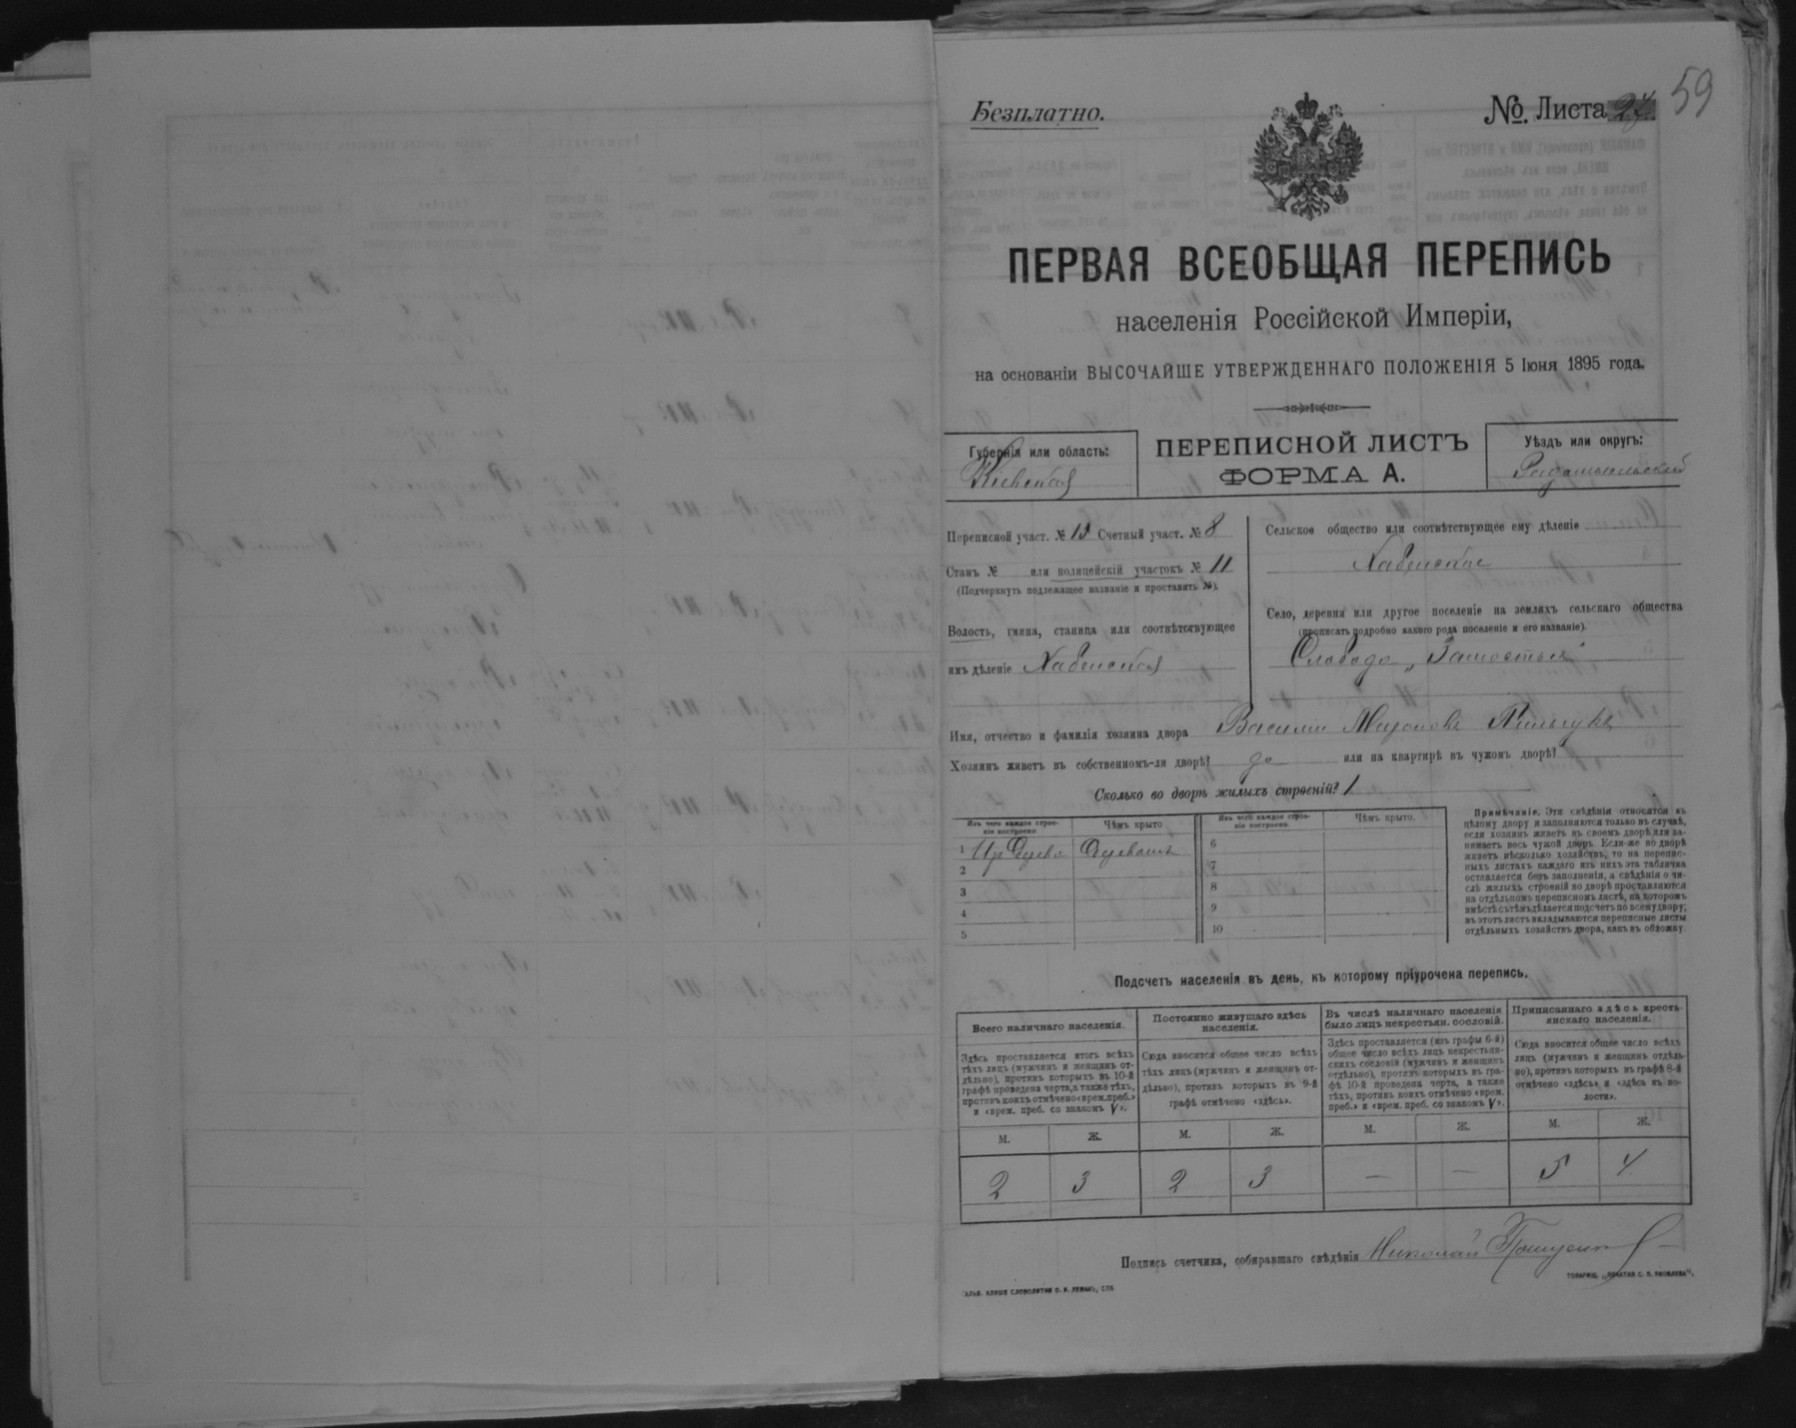 59
Безплатно.
№ Листа 24
ПЕРВАЯ ВСЕОБЩАЯ ПЕРЕПИСЬ
населенія Россійской Имперіи,
на основаніи ВЫСОЧАЙШЕ УТВЕРЖДЕННАГО ПОЛОЖЕНІЯ 5 Іюня 1895 года.
Губернія или область:
Кіевская
ПЕРЕПИСНОЙ ЛИСТЪ
ФОРМА А.
Уѣздъ или округъ:
Радомысльскій
Переписной участ. № 13 Счетный участ. № 8
Станъ № или полицейскій участокъ № 11
(Подчеркнуть подлежащее названіе и проставить №).
Волость, гмина, станица или соотвѣтствующее
имъ дѣленіе Хабенская
Сельское общество или соотвѣтствующее ему дѣленіе
Хабенское
Село, деревня или другое поселеніе на земляхъ сельскаго общества
(прописать подробно какого рода поселеніе и его названіе).
Слобода „Замостье"
Имя, отчество и фамилія хозяина двора Василій Мироновъ
Хозяинъ живетъ въ собственномъ-ли дворѣ? да или на квартирѣ въ чужомъ дворѣ?
Сколько во дворѣ жилыхъ строеній? 1
Изъ чего каждое строеніе построено.
Чѣмъ крыто
Изъ чего каждое строеніе построено.
Чѣмъ крыто.
1 Изъ дерева Деревомъ
2
3
4
5
6
7
8
9
10
Примѣчаніе. Эти свѣдѣнія относятся къ
цѣлому двору и заполняются только въ случаѣ,
если хозяинъ живетъ въ своемъ дворѣ или за-
нимаетъ весь чужой дворъ. Если-же во дворѣ
живетъ нѣсколько хозяйствъ, то на перепис-
ныхъ листахъ каждаго изъ нихъ эта табличка
оставляется безъ заполненія, а свѣдѣнія о чи-
слѣ жилыхъ строеній во дворѣ проставляются
на отдѣльномъ переписномъ листѣ, на которомъ
вмѣстѣ съ тѣмъ дѣлается подсчетъ по всему двору;
въ этотъ листъ вкладываются переписные листы
отдѣльныхъ хозяйствъ двора, какъ въ обложку
Подсчетъ населенія въ день, къ которому пріурочена перепись.
Всего наличнаго населенія.
Здѣсь проставляется итогъ всѣхъ
тѣхъ лицъ (мужчинъ и женщинъ от-
дѣльно), противъ которыхъ въ 10-й
графѣ проведена черта, а также тѣхъ,
противъ коихъ отмѣчено «врем. преб.»
и «врем. преб. со знакомъ V».
Постоянно живущаго здѣсь
населенія.
Сюда вносится общее число всѣхъ
тѣхъ лицъ (мужчинъ и женщинъ от-
дѣльно), противъ которыхъ въ 9-й
графѣ отмѣчено «здѣсь».
Въ числѣ наличнаго населенія
было лицъ некрестьян. сословій.
Здѣсь проставляется (изъ графы 6-й)
общее число всѣхъ лицъ некрестьян-
скихъ сословій (мужчинъ и женщинъ
отдѣльно), противъ которыхъ въ гра-
фѣ 10-й проведена черта, а также
тѣхъ, противъ коихъ отмѣчено «врем.
преб.» и «врем. преб. со знакомъ V».
Приписаннаго здѣсь кресть-
янскаго населенія.
Сюда вносится общее число всѣхъ
лицъ (мужчинъ и женщинъ отдѣль-
но), противъ которыхъ въ графѣ 8-й
отмѣчено «здѣсь» и «здѣсь въ во-
лости».
М. Ж. М. Ж. М. Ж. М. Ж.
2 3 2 3 — — 5 4
Подпись счетчика, собиравшаго свѣдѣнія Николай